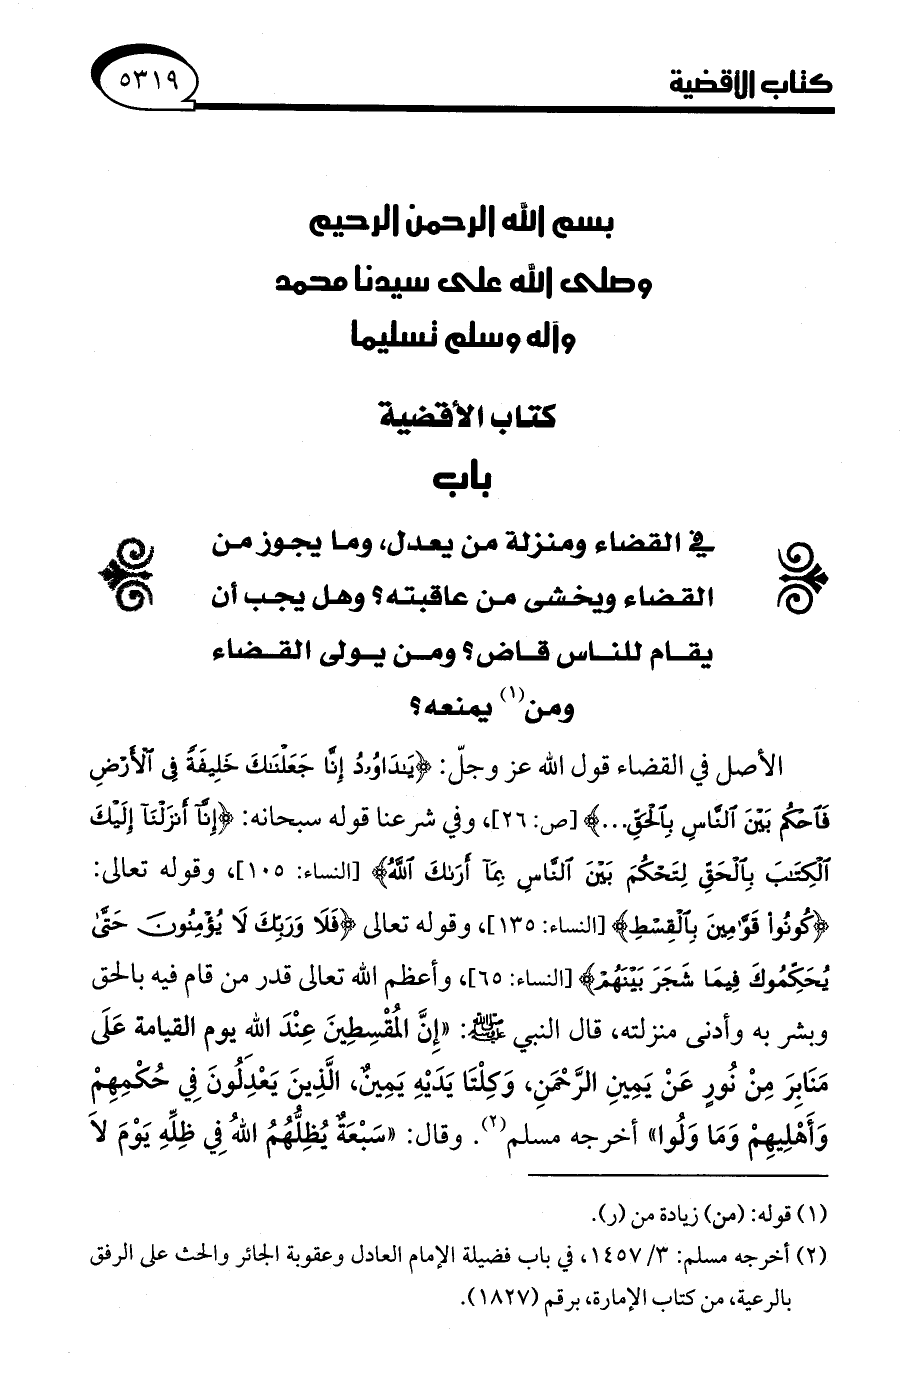 كتاب الأقضية
٥٣١٩
بسم الله الرحمن الرحيم
وصلى الله على سيدنا محمد
وآله وسلم تسليما
كتاب الأقضية
باب
في القضاء ومنزلة من يعدل، وما يجوز من
القضاء ويخشى من عاقبته؟ وهل يجب أن
يقام للناس قاض؟ ومن يولى القضاء
ومن(١) يمنعه؟
الأصل في القضاء قول الله عز وجلّ: ﴿يَٰدَاوُۥدُ إِنَّا جَعَلْنَٰكَ خَلِيفَةً فِي ٱلْأَرْضِ
فَٱحْكُم بَيْنَ ٱلنَّاسِ بِٱلْحَقِّ...﴾ [ص: ٢٦]، وفي شرعنا قوله سبحانه: ﴿إِنَّآ أَنزَلْنَآ إِلَيْكَ
ٱلْكِتَٰبَ بِٱلْحَقِّ لِتَحْكُمَ بَيْنَ ٱلنَّاسِ بِمَآ أَرَىٰكَ ٱللَّهُ﴾ [النساء: ١٠٥]، وقوله تعالى:
﴿كُونُوا۟ قَوَّٰمِينَ بِٱلْقِسْطِ﴾ [النساء: ١٣٥]، وقوله تعالى ﴿فَلَا وَرَبِّكَ لَا يُؤْمِنُونَ حَتَّىٰ
يُحَكِّمُوكَ فِيمَا شَجَرَ بَيْنَهُمْ﴾ [النساء: ٦٥]، وأعظم الله تعالى قدر من قام فيه بالحق
وبشر به وأدنى منزلته، قال النبي ﷺ: «إِنَّ الْمُقْسِطِينَ عِنْدَ الله يوم القيامة عَلَى
مَنَابِرَ مِنْ نُورٍ عَنْ يَمِينِ الرَّحْمَنِ، وَكِلْتَا يَدَيْهِ يَمِينٌ، الَّذِينَ يَعْدِلُونَ فِي حُكْمِهِمْ
وَأَهْلِيهِمْ وَمَا وَلُوا» أخرجه مسلم(٢). وقال: «سَبْعَةٌ يُظِلُّهُمُ اللهُ فِي ظِلِّهِ يَوْمَ لاَ
(١) قوله: (من) زيادة من (ر).
(٢) أخرجه مسلم: ٣/ ١٤٥٧، في باب فضيلة الإمام العادل وعقوبة الجائر والحث على الرفق
بالرعية، من كتاب الإمارة، برقم (١٨٢٧).